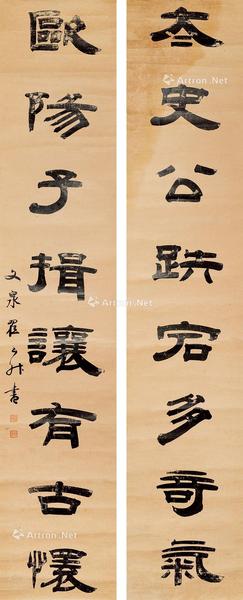 太史公跌宕多奇氣
歐陽子揖讓有古懷
文泉翟云升書
Artron.Net
Artron.Net
Artron.Net
Artron.Net